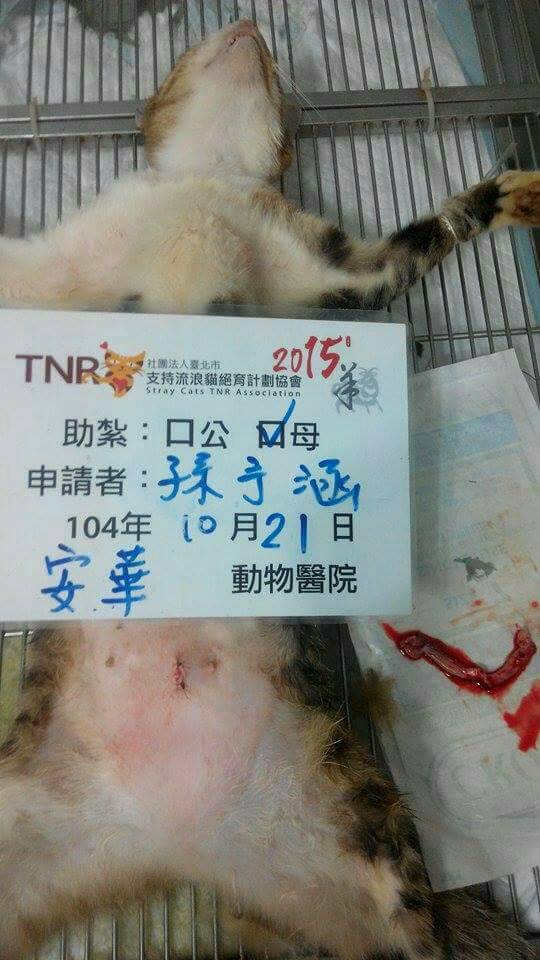 TNR 社團法人臺北市
支持流浪貓絕育計劃協會
Stray Cats TNR Association
2015 羊
助紮：口公 口母
申請者：孫于涵
104年 10月21日
安華 動物醫院